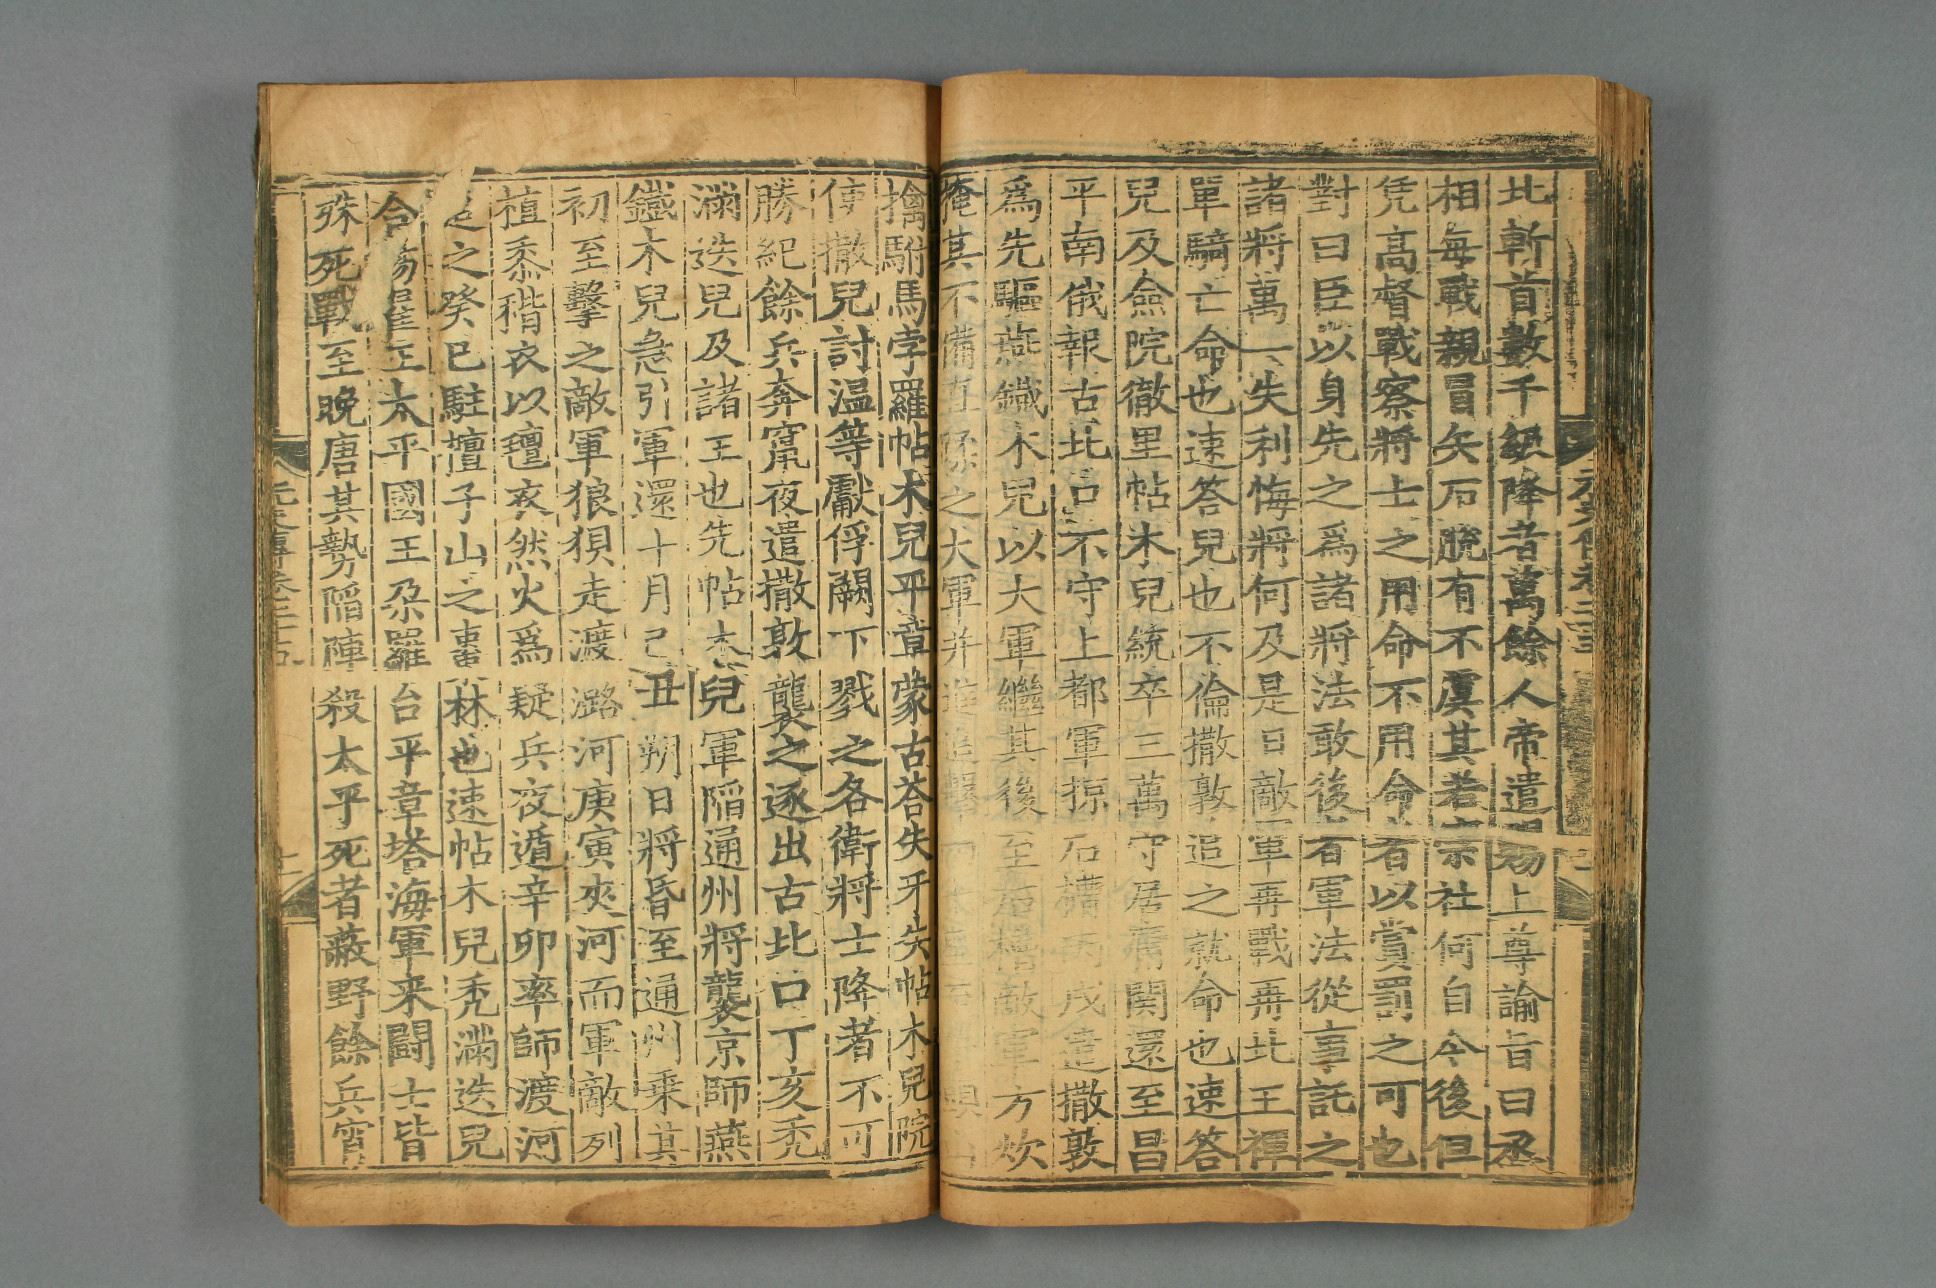 北斬首數千級降者萬餘人帝遣賜上尊諭旨曰丞
相每戰親冒矢石脫有不虞其若宗社何自今後但
凭高督戰察將士之用命不用命者以賞罰之可也
對曰臣以身先之爲諸將法敢後者軍法從事託之
諸將萬一失利悔將何及是日敵軍再戰再北王禪
單騎亡命也速答兒也不倫撒敦追之就命也速答
兒及僉院徹里帖木兒統卒三萬守居庸関還至昌
平南俄報古北口不守上都軍掠石槽丙戌遣撒敦
爲先驅燕鐵木兒以大軍繼其後至石槽敵軍方炊
掩其不備直擣之大軍并進追擊
擒駙馬孛羅帖木兒平章蒙古荅失牙失帖木兒院
使撒兒討温等獻俘闕下戮之各衛將士降者不可
勝紀餘兵奔竄夜遣撒敦襲之逐出古北口丁亥禿
滿迭兒及諸王也先帖木兒軍陷通州將襲京師燕
鐵木兒急引軍還十月己丑朔日將昏至通州乗其
初至擊之敵軍狼狽走渡潞河庚寅夾河而軍敵列
植黍稭衣以氊衣然火爲疑兵夜遁辛卯率師渡河
追之癸巳駐檀子山之棗林也速帖木兒禿滿迭兒
合陽翟王太平國王朶羅台平章塔海軍来鬪士皆
殊死戰至晚唐其勢陷陣殺太平死者蔽野餘兵宵
元史傳卷二十五